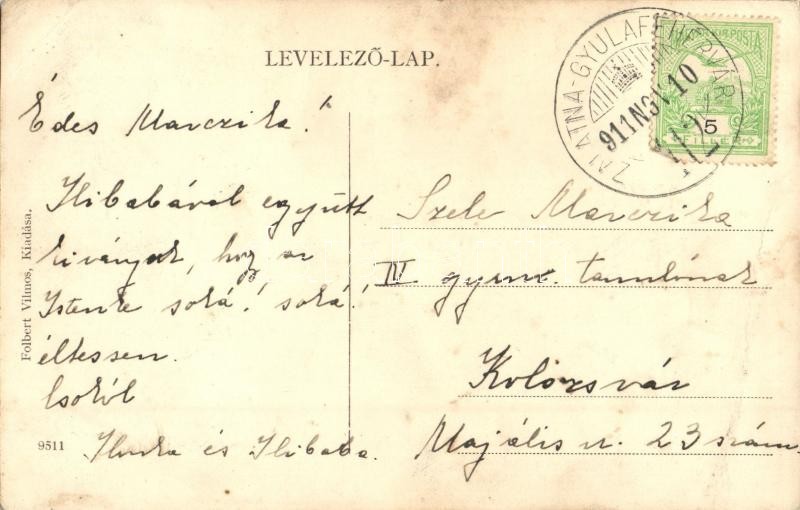 LEVELEZŐ-LAP.
ZALATNA-GYULAFEHÉRVÁR
911 NOV 10
POSTA
5
FILLÉR
Édes Marczika!
Ilibabával együtt
kivánjuk, hogy az
Istenke soká! soká!
éltessen.
Csókol
Ilonka és Ilibaba.
Szele Marczika
IV gymn. tanulónak
Kolozsvár
Majális u. 23 szám.
Folbert Vilmos, Kiadása.
9511